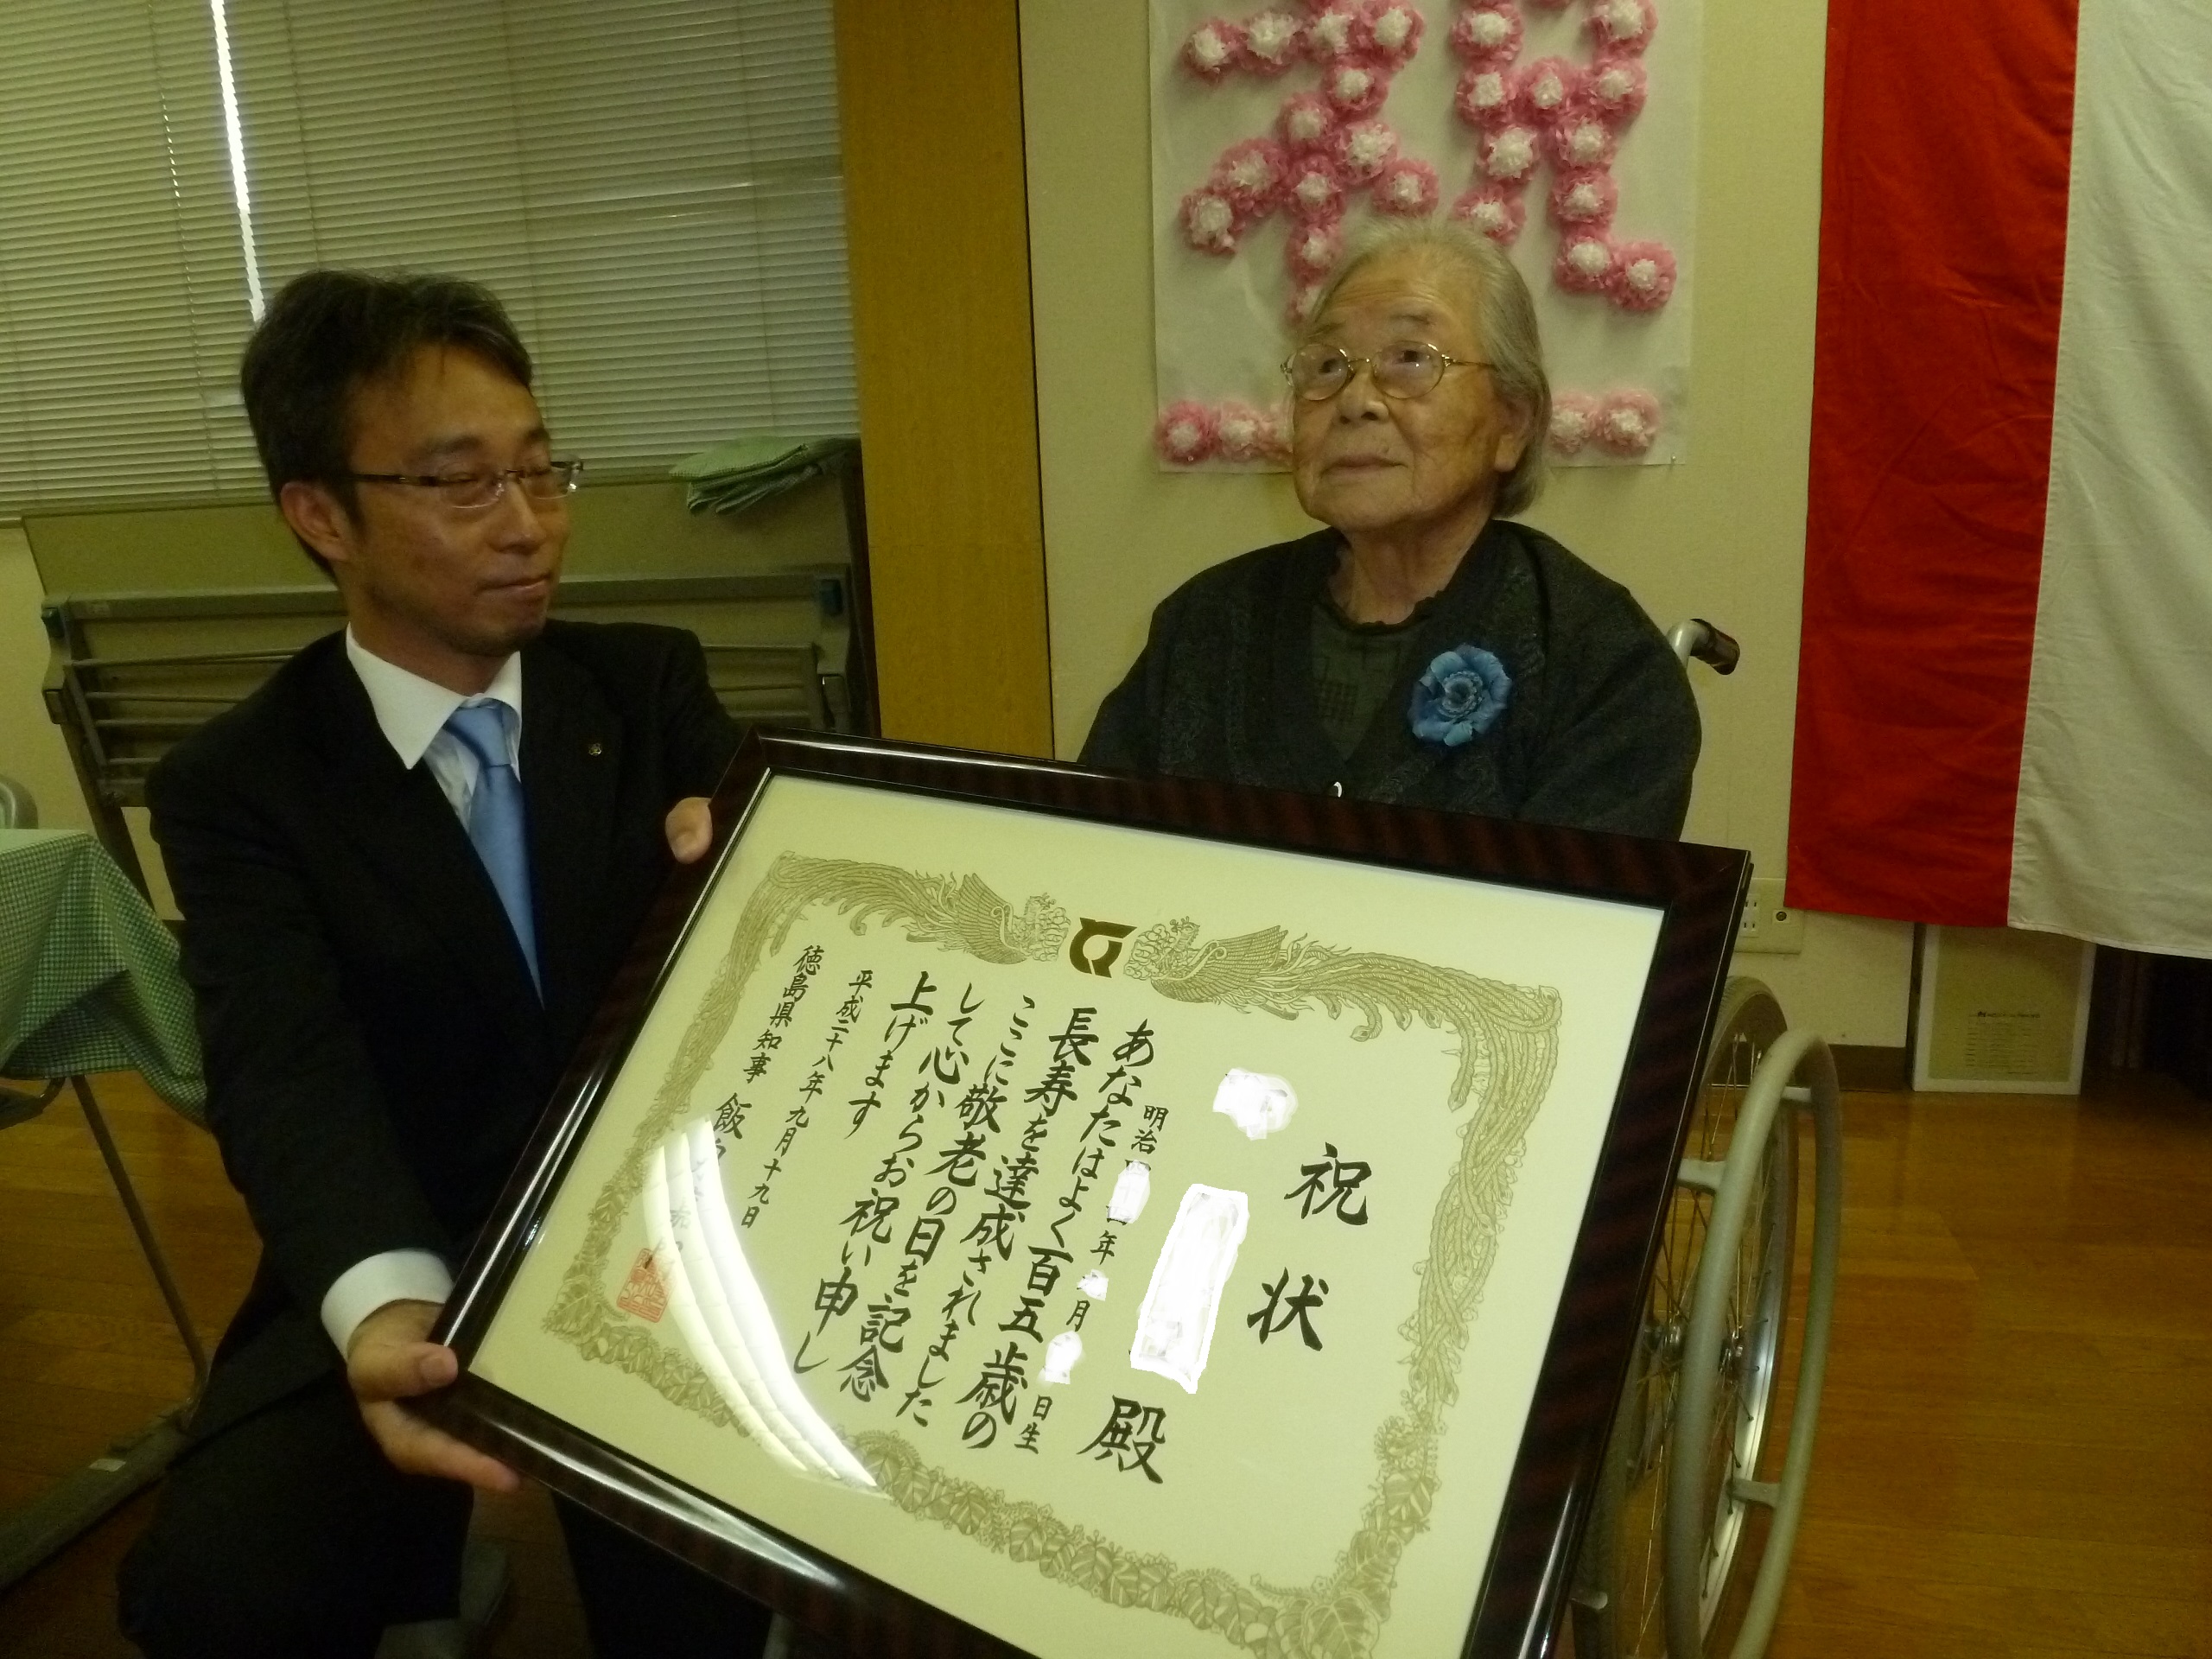 祝
祝状
殿
明治
年
月
日生
あなたはよく百五歳の
長寿を達成されました
ここに敬老の日を記念
して心からお祝い申し
上げます
平成二十八年九月十九日
徳島県知事 飯